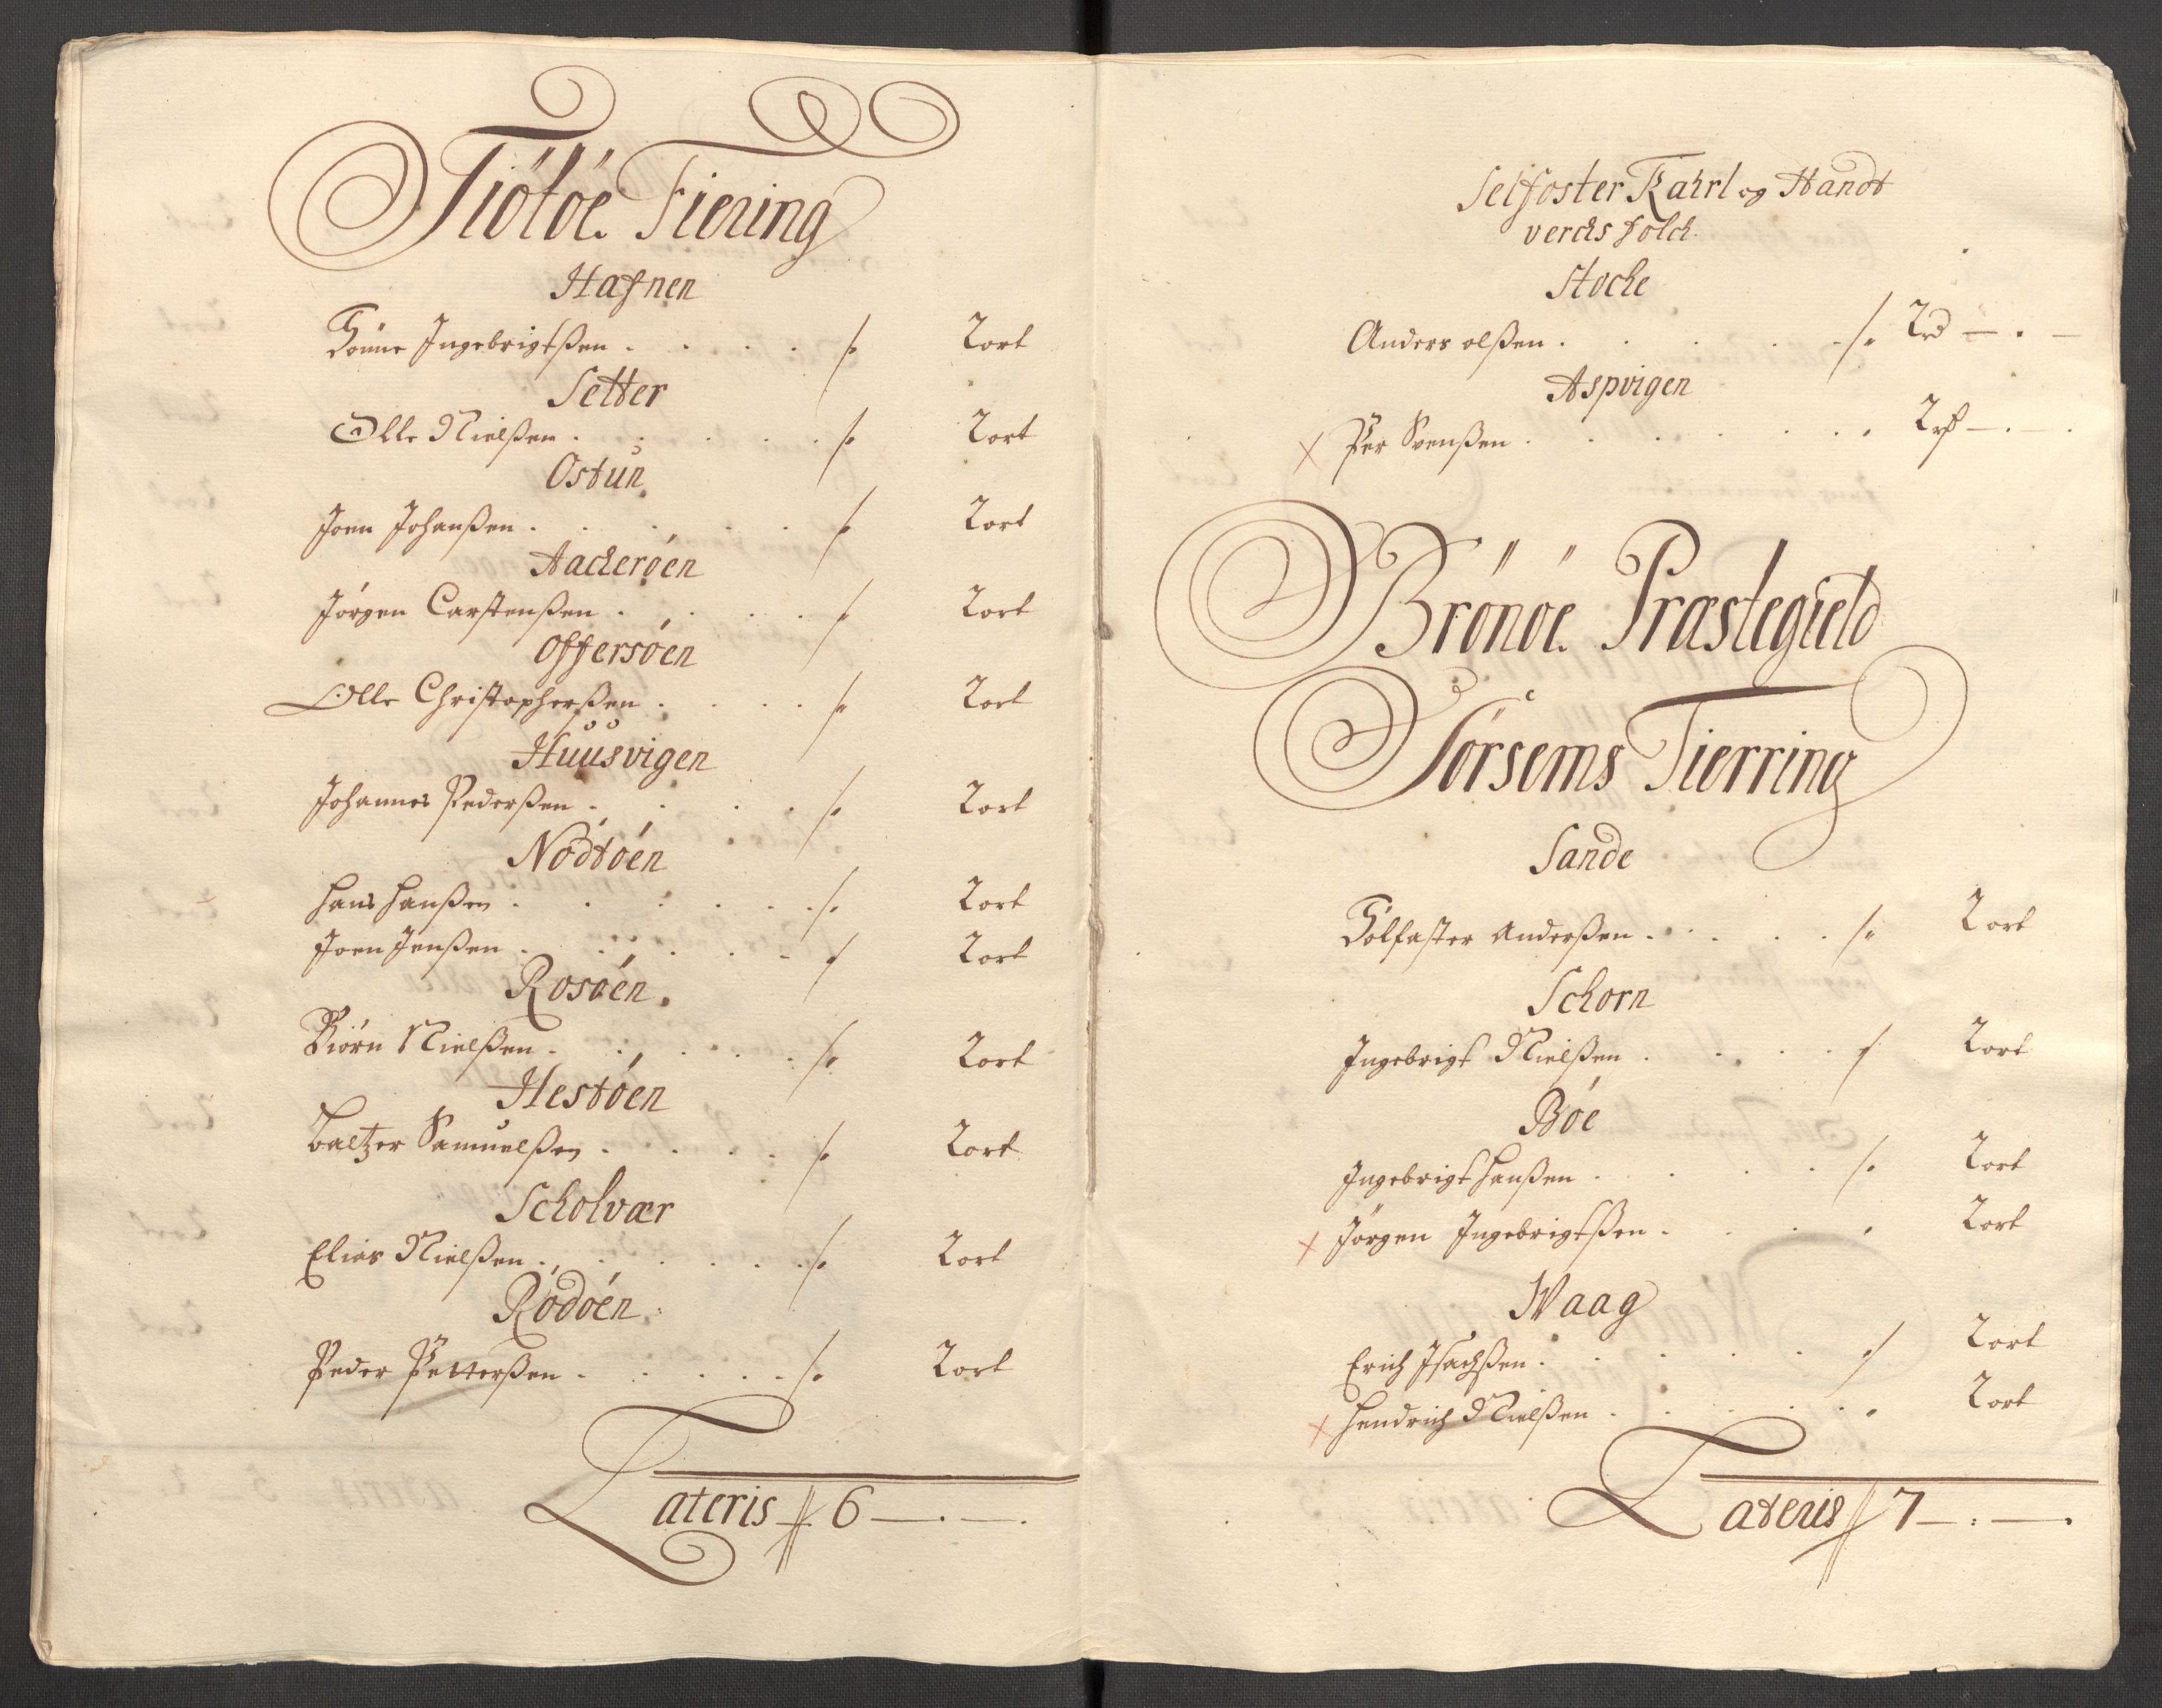 Tiötöe Fiering
Hafnen
Tönne Ingebrigtßen . . . . 2 ort
Setter
Olle Nielßen . . . . 2 ort
Ostun
Joen Johanßen . . . . 2 ort
Aacherøen
Jørgen Carstenßen . . . . 2 ort
Offersøen
Olle Christopherßen . . . . 2 ort
Huusvigen
Johannes Pederßen . . . . 2 ort
Nødtøen
Hans Hanßen . . . . 2 ort
Joen Jenßen . . . . 2 ort
Rosøen.
Biørn Nielßen . . . . 2 ort
Hestøen
Baltzer Samuelßen . . . . 2 ort
Scholvær
Elias Nielßen . . . . 2 ort
Rødøen
Peder Petterßen . . . . 2 ort
Lateris 6 — . — .
Selfoster Kahrl og Handt
verchs folch.
Stoche
Anders olßen . . . . 2 rd — . —
Aspvigen
× Per Svenßen . . . . 2 rd — . — .
Brönöe Præstegield
Sørsems Fierring
Sande
Tolfaster Anderßen . . . . 2 ort
Schorn
Ingebrigt Nielßen . . . . 2 ort
Bøe
Ingebrigt Hanßen . . . . 2 ort
× Jørgen Ingebrigtßen . . . . 2 ort
Waag
Erich Isachßen . . . . 2 ort
× Hendrich Nielßen . . . . 2 ort
Lateris 7 — . — .